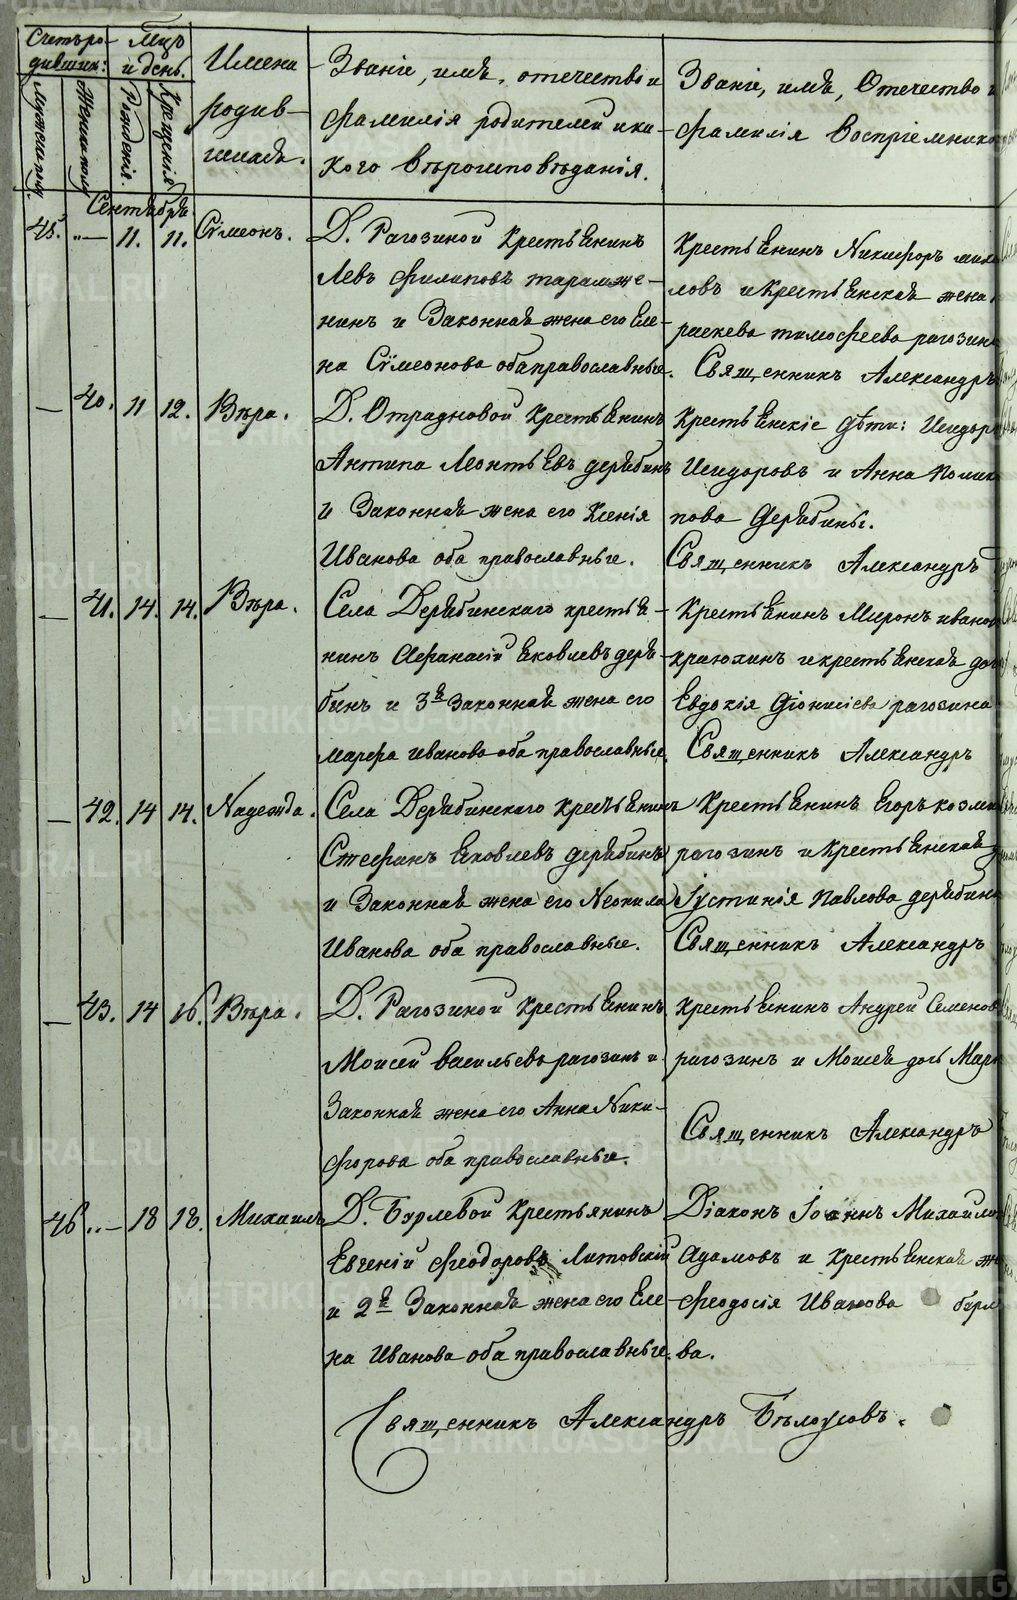 Счетъ ро-
дивших:
Мцъ
и день.
Имена
родив-
шихся.
Званіе, имя, отечество и
фамилія родителей и ка-
кого вѣроисповѣданія.
Званіе, имя, Отечество и
фамилія Воспріемнико
Мужеска пол.
Женска пола
Рожденія.
Крещенія
Сентябрь
45. „— 11. 11. Сѵмеонъ.
Д. Рагозиной Крестьянинъ
Левъ Филиповъ
нинъ и Законная жена его Еле-
на Сѵмеонова оба православные.
Крестьянинъ Никифоръ
ловъ и Крестьянская жена
раскева тимофеева рагозин
Священникъ Александръ
— 40. 11 12. Вѣра.
Д. Отрадновой Крестьянинъ
Антипа Леонтьевъ дерябинъ
и Законная жена его Ксенія
Иванова оба православные.
Крестьянскіе дѣти: Исидоръ
Исидоровъ и Анна
пова Дерябины.
Священникъ Александръ
— 41. 14. 14. Вѣра.
Села Дерябинскаго крестья-
нинъ Афанасій Яковлевъ деря-
бинъ и 3я Законная жена его
марфа иванова оба православные.
Крестьянинъ Миронъ ивано
краюхинъ и крестьянская доч
Евдокія Діонисіева рагозина
Священникъ Александръ
— 42. 14 14. Надежда.
Села Дерябинскаго Крестьянинъ
Стефанъ Яковлевъ дерябинъ
и Законная жена его Неонила
Иванова оба православные.
Крестьянинъ Егоръ козми
рагозинъ и Крестьянская
Іустинія Павлова дерябина
Священникъ Александръ
— 43. 14 16. Вѣра.
Д. Рагозиной Крестьянинъ
Моисей васильевъ рагозинъ и
Законная жена его Анна Ники-
форова оба православные.
Крестьянинъ Андрей Семенов
рагозинъ и Моисея дочь Мар
Священникъ Александръ
46. „— 18 18. Михаилъ
Д. Бурлевой Крестьянинъ
Евгеній Феодоровъ Литовскій
и 2я Законная жена его Еле-
на Иванова оба православные.
Діаконъ Іоаннъ Михайло
Адамовъ и Крестьянская ж
Феодосія Иванова бурл
ва.
Священникъ Александръ Бѣлоусовъ.
METRIKI.GASO-URAL.RU